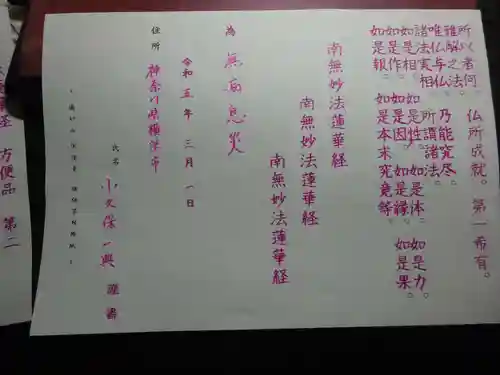 仏所成就。第一希有。
所以者何
難解之法
唯仏与仏
乃能究尽。
諸法実相
所謂諸法。
如是相
如是性
如是体
如是力
如是作
如是因
如是縁
如是果
如是報
如是本末究竟等
南無妙法蓮華経
南無妙法蓮華経
南無妙法蓮華経
為 無病息災
令和五年 三月一日
住所 神奈川県横浜市
氏名 小久保一興 謹書
方便品 第二